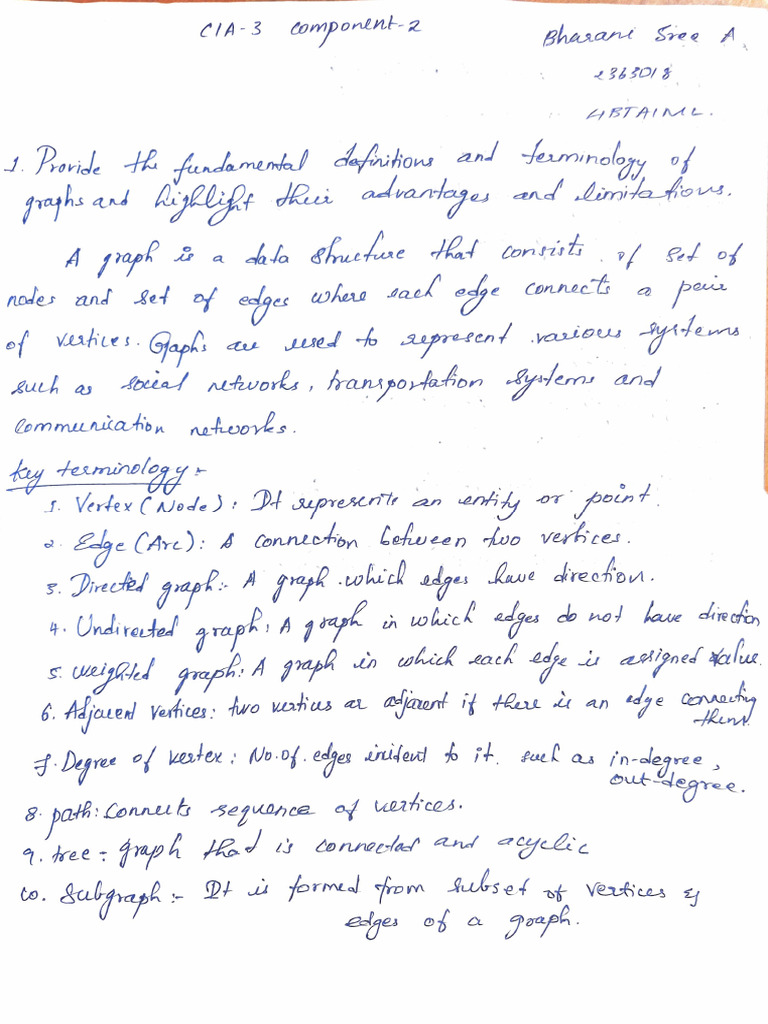 CIA-3 Component-2
Bharani Sree A
2363018
4BTAIML.
1. Provide the fundamental definitions and terminology of
graphs and highlight their advantages and limitations.
A graph is a data structure that consists of set of
nodes and set of edges where each edge connects a pair
of vertices. Gaphs are used to represent various systems
such as social networks, transportation systems and
communication networks.
Key terminology:-
1. Vertex (Node): It represents an entity or point.
2. Edge (Arc): A connection between two vertices.
3. Directed graph:- A graph which edges have direction.
4. Undirected graph: A graph in which edges do not have direction
5. Weighted graph: A graph in which each edge is assigned value.
6. Adjacent vertices: two vertices are adjacent if there is an edge connecting
them.
7. Degree of vertex: No. of edges incident to it. such as in-degree,
out-degree.
8. path: Connects sequence of vertices.
9. tree - graph that is connected and acyclic
10. Subgraph:- It is formed from subset of vertices &
edges of a graph.